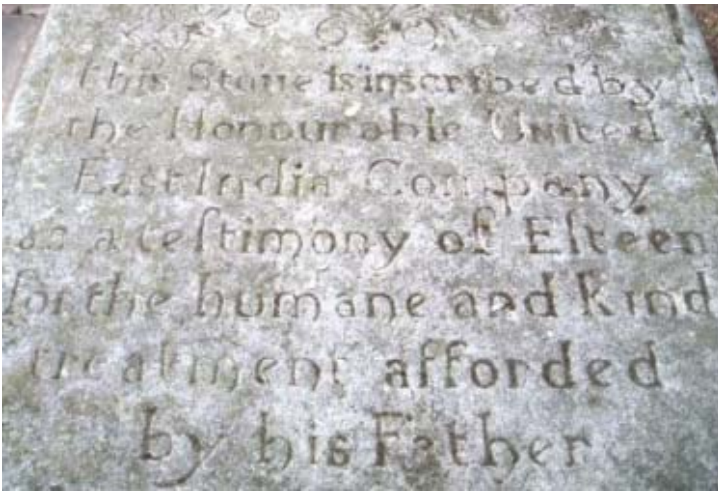 this Stone is inscribed by
the Honourable United
East India Company
as a teſtimony of Eſteem
for the humane and kind
treatment afforded
by his Father